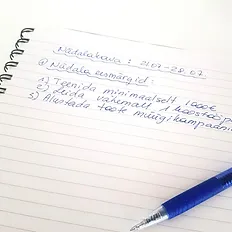 Nädalakava: 21.07-28.07.
@ Nädala eesmärgid:
1) Teenida minimaalselt 1000€
2) Leida vähemalt 1 koostööp
3) Alustada müügikampaania